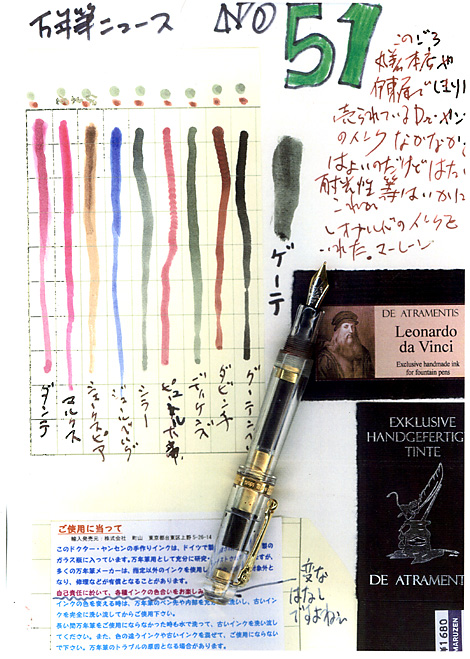 万年筆ニュース NO 51
このごろ
丸善本店や
伊東屋で
売られているDr.ヤンセン
のインク なかなか
はよいのだけど
耐光性等はいかに
これが
レオナルドのインクを
いれた。マーレン
ゲーテ
ダンテ
マルクス
シェークスピア
ジュールベルヌ
シラー
ディケンズ
ダビンチ
グーテンベ
DE ATRAMENTIS
Leonardo
da Vinci
Exclusive handmade ink
for fountain pens
EXKLUSIVE
HANDGEFERTIG
TINTE
DE ATRAMENT
¥1680
MARUZEN
ご使用に当って
輸入発売元:株式会社 町山 東京都台東区上野5-26-14
このドクター・ヤンセンの手作りインクは、ドイツで製
ガラス瓶に入っています。万年筆用として充分に研究・
多くの万年筆メーカーは、指定以外のインクを使用し
なり、修理などが有償となることがあります。
自己責任に於いて、各種インクの色合いをお楽しみ
インクの色を変える時は、万年筆のペン先や内部を
を完全に洗い流してからご使用下さい。
長い間万年筆をご使用にならなかった時も水で洗って、古いインクを洗い流し
てください。また、色の違うインクや古いインクを混ぜて、ご使用にならない
で下さい。万年筆のトラブルの原因となる場合があります。
変な
はなし
ですよねぃ